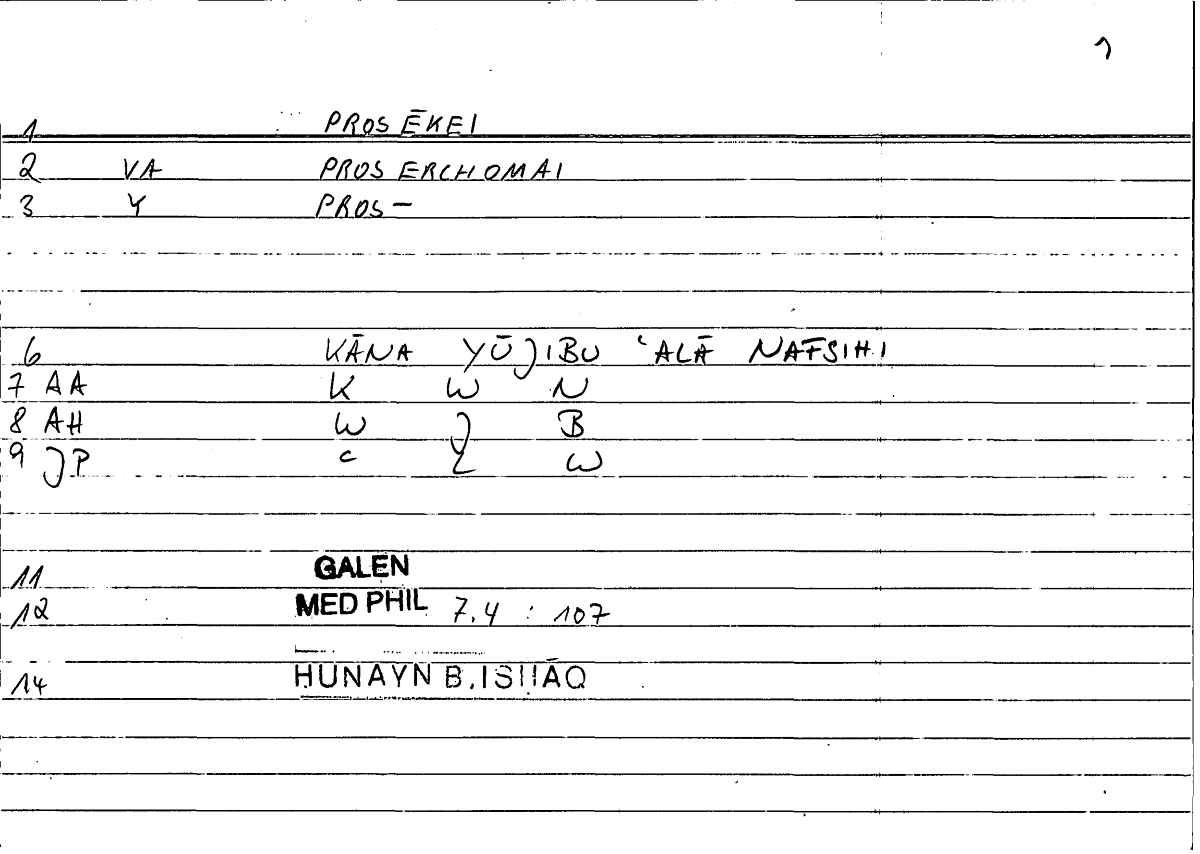 1
1 PROSĒKEI
2 VA PROS ERCHOMAI
3 Y PROS-
6 KĀNA YŪJIBU ʿALĀ NAFSIHI
7 AA K W N
8 AH W J B
9 JP ʿ L W
11 GALEN
12 MED PHIL 7.4 : 107
14 HUNAYN B. ISHĀQ